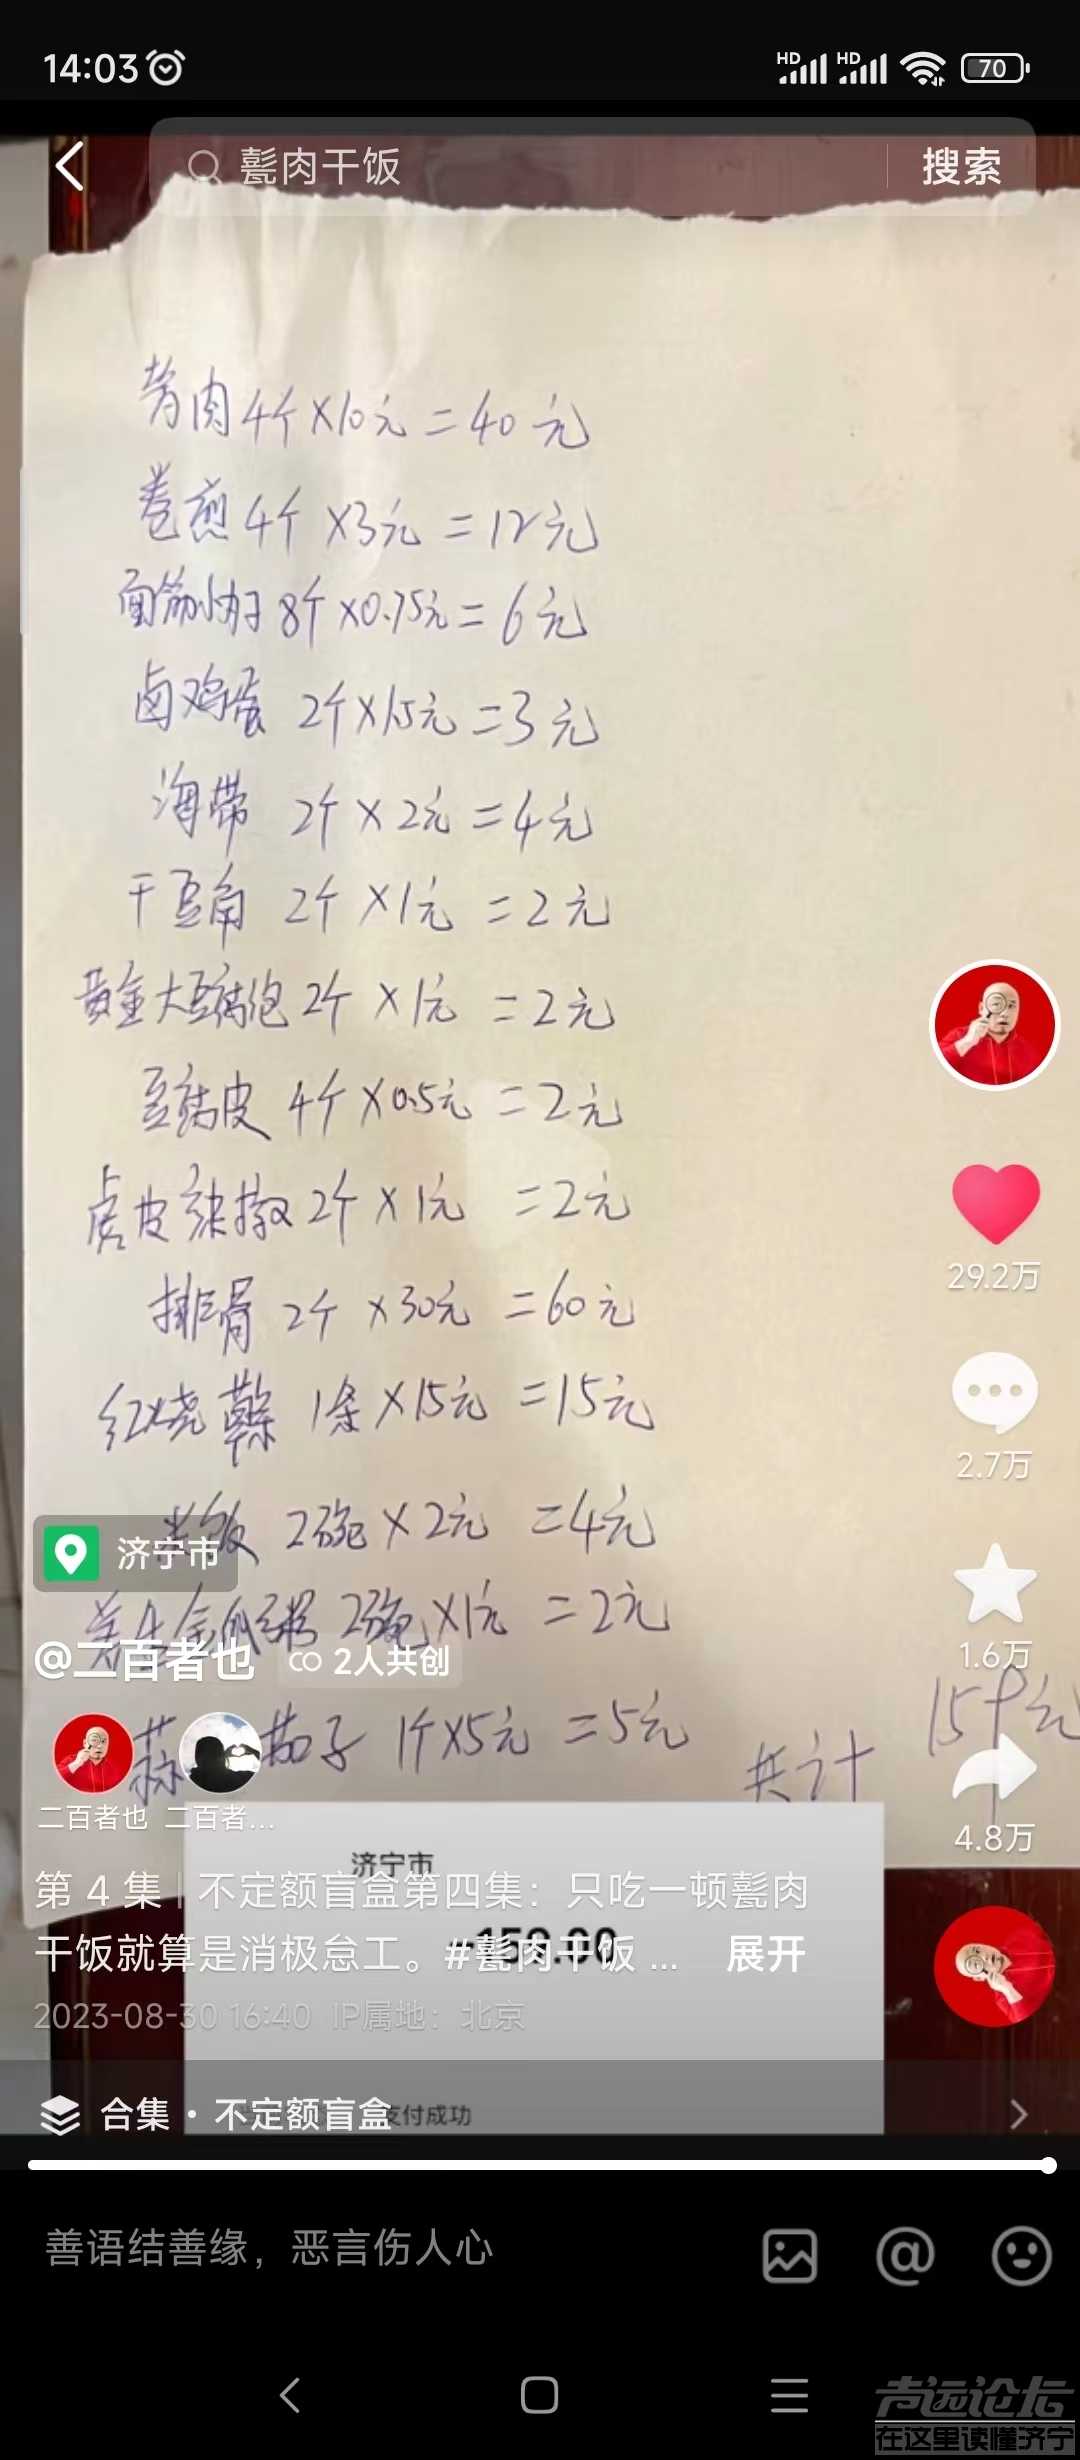 14:03 HD HD 70
甏肉干饭 搜索
肉 4个×10元=40元
卷煎 4个×3元=12元
面筋小丸子 8个×0.75元=6元
卤鸡蛋 2个×1.5元=3元
海带 2个×2元=4元
干豆角 2个×1元=2元
黄金大豆腐泡 2个×1元=2元
豆腐皮 4个×0.5元=2元
虎皮辣椒 2个×1元=2元
排骨 2个×30元=60元
红烧 1条×15元=15元
米饭 2碗×2元=4元
粥 2碗×1元=2元
茄子 1个×5元=5元
共计 159元
29.2万
2.7万
1.6万
4.8万
济宁市
@二百者也 2人共创
二百者也 二百者...
济宁市
-159.00
支付成功
第 4 集 | 不定额盲盒第四集：只吃一顿甏肉
干饭就算是消极怠工。#甏肉干饭 ... 展开
2023-08-30 16:40 IP属地：北京
合集 · 不定额盲盒
善语结善缘，恶言伤人心
声远论坛
在这里读懂济宁